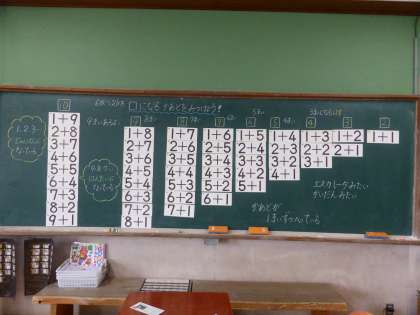 □になるカードをみつけよう!
10
9
8
7
6
5
4
3
2
1+9
2+8
3+7
4+6
5+5
6+4
7+3
8+2
9+1
1+8
2+7
3+6
4+5
5+4
6+3
7+2
8+1
1+7
2+6
3+5
4+4
5+3
6+2
7+1
1+6
2+5
3+4
4+3
5+2
6+1
1+5
2+4
3+3
4+2
5+1
1+4
2+3
3+2
4+1
1+3
2+2
3+1
1+2
2+1
1+1
1.2.3…
じゅんばんに
なっている
9.8.7…
じゅんばんに
なっている
エスカレータみたい
かいだんみたい
カードが
1まいずつへっている